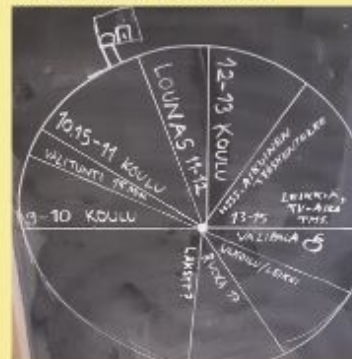 9-10 KOULU
VÄLITUNTI 15 MIN
10.15-11 KOULU
LOUNAS 11-12
12-13 KOULU
JOSS AIKUINEN
TYÖSKENTELEE
13-15
LEIKKIÄ,
TV-AIKA
TMS.
VÄLIPALA
ULKOILU/LEIKKI
RUOKA 17
LÄKSYT?